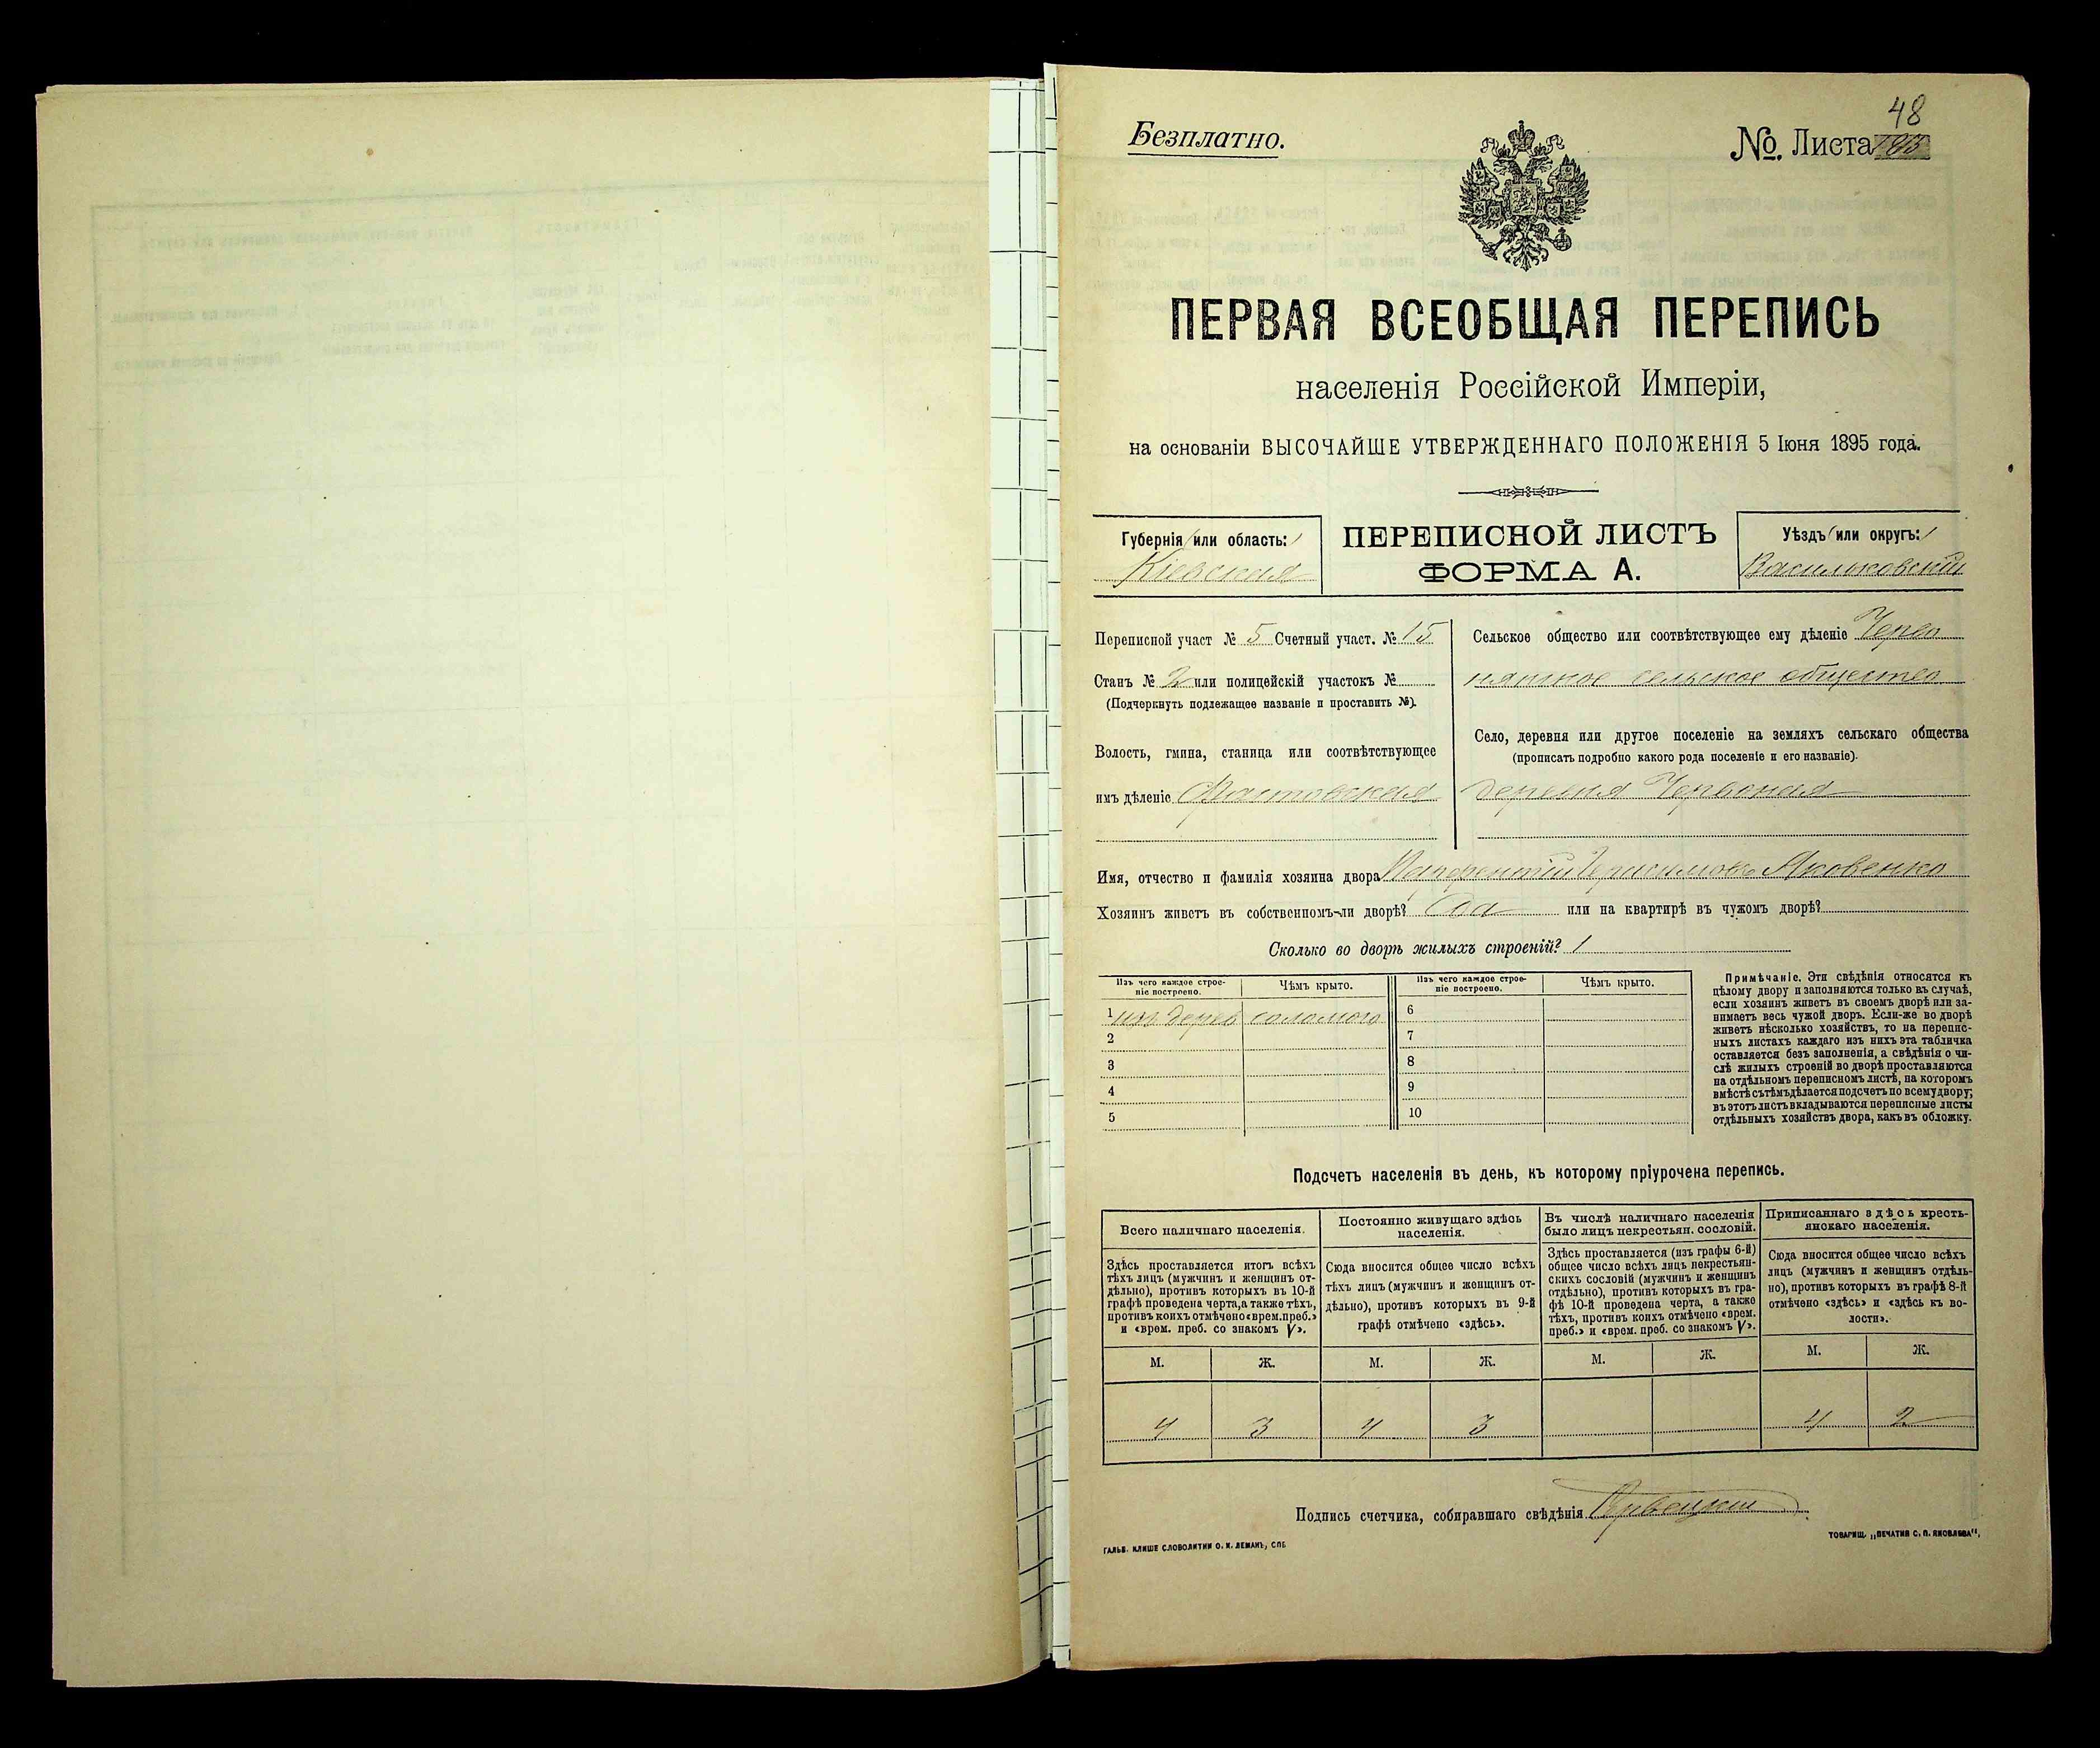 48
Безплатно.
№. Листа
ПЕРВАЯ ВСЕОБЩАЯ ПЕРЕПИСЬ
населенія Россійской Имперіи,
на основаніи ВЫСОЧАЙШЕ УТВЕРЖДЕННАГО ПОЛОЖЕНІЯ 5 Іюня 1895 года.
Губернія (или область:)
Кіевская
ПЕРЕПИСНОЙ ЛИСТЪ
ФОРМА А.
Уѣздъ (или округъ:)
Васильковскій
Переписной участ № 5 Счетный участ. № 15
Станъ № 2 или полицейскій участокъ №
(Подчеркнуть подлежащее названіе и проставить №).
Волость, гмина, станица или соотвѣтствующее
имъ дѣленіе Фастовская
Сельское общество или соотвѣтствующее ему дѣленіе Черво
нянское сельское общество
Село, деревня или другое поселеніе на земляхъ сельскаго общества
(прописать подробно какого рода поселеніе и его названіе).
деревня Червоная
Имя, отчество и фамилія хозяина двора Герасимовъ Яковенко
Хозяинъ живетъ въ собственномъ-ли дворѣ? или на квартирѣ въ чужомъ дворѣ?
Сколько во дворѣ жилыхъ строеній? 1
Изъ чего каждое строе-
ніе построено.
Чѣмъ крыто.
Изъ чего каждое строе-
ніе построено.
Чѣмъ крыто.
1 изъ дерев соломою
2
3
4
5
6
7
8
9
10
Примѣчаніе. Эти свѣдѣнія относятся къ
цѣлому двору и заполняются только въ случаѣ,
если хозяинъ живетъ въ своемъ дворѣ или за-
нимаетъ весь чужой дворъ. Если-же во дворѣ
живетъ нѣсколько хозяйствъ, то на перепис-
ныхъ листахъ каждаго изъ нихъ эта табличка
оставляется безъ заполненія, а свѣдѣнія о чи-
слѣ жилыхъ строеній во дворѣ проставляются
на отдѣльномъ переписномъ листѣ, на которомъ
вмѣстѣ съ тѣмъ дѣлается подсчетъ по всему двору;
въ этотъ листъ вкладываются переписные листы
отдѣльныхъ хозяйствъ двора, какъ въ обложку.
Подсчетъ населенія въ день, къ которому пріурочена перепись.
Всего наличнаго населенія.
Здѣсь проставляется итогъ всѣхъ
тѣхъ лицъ (мужчинъ и женщинъ от-
дѣльно), противъ которыхъ въ 10-й
графѣ проведена черта, а также тѣхъ,
противъ коихъ отмѣчено «врем. преб.»
и «врем. преб. со знакомъ V».
Постоянно живущаго здѣсь
населенія.
Сюда вносится общее число всѣхъ
тѣхъ лицъ (мужчинъ и женщинъ от-
дѣльно), противъ которыхъ въ 9-й
графѣ отмѣчено «здѣсь».
Въ числѣ наличнаго населенія
было лицъ некрестьян. сословій.
Здѣсь проставляется (изъ графы 6-й)
общее число всѣхъ лицъ некрестьян-
скихъ сословій (мужчинъ и женщинъ
отдѣльно), противъ которыхъ въ гра-
фѣ 10-й проведена черта, а также
тѣхъ, противъ коихъ отмѣчено «врем.
преб.» и «врем. преб. со знакомъ V».
Приписаннаго здѣсь кресть-
янскаго населенія.
Сюда вносится общее число всѣхъ
лицъ (мужчинъ и женщинъ отдѣль-
но), противъ которыхъ въ графѣ 8-й
отмѣчено «здѣсь» и «здѣсь къ во-
лости».
М. Ж. М. Ж. М. Ж. М. Ж.
4 3 4 3 4 2
Подпись счетчика, собиравшаго свѣдѣнія
ГАЛЬВ. КЛИШЕ СЛОВОЛИТНИ О. И. ЛЕМАНЪ, СПБ
ТОВАРИЩ. „ПЕЧАТНЯ С. П. ЯКОВЛЕВА“,